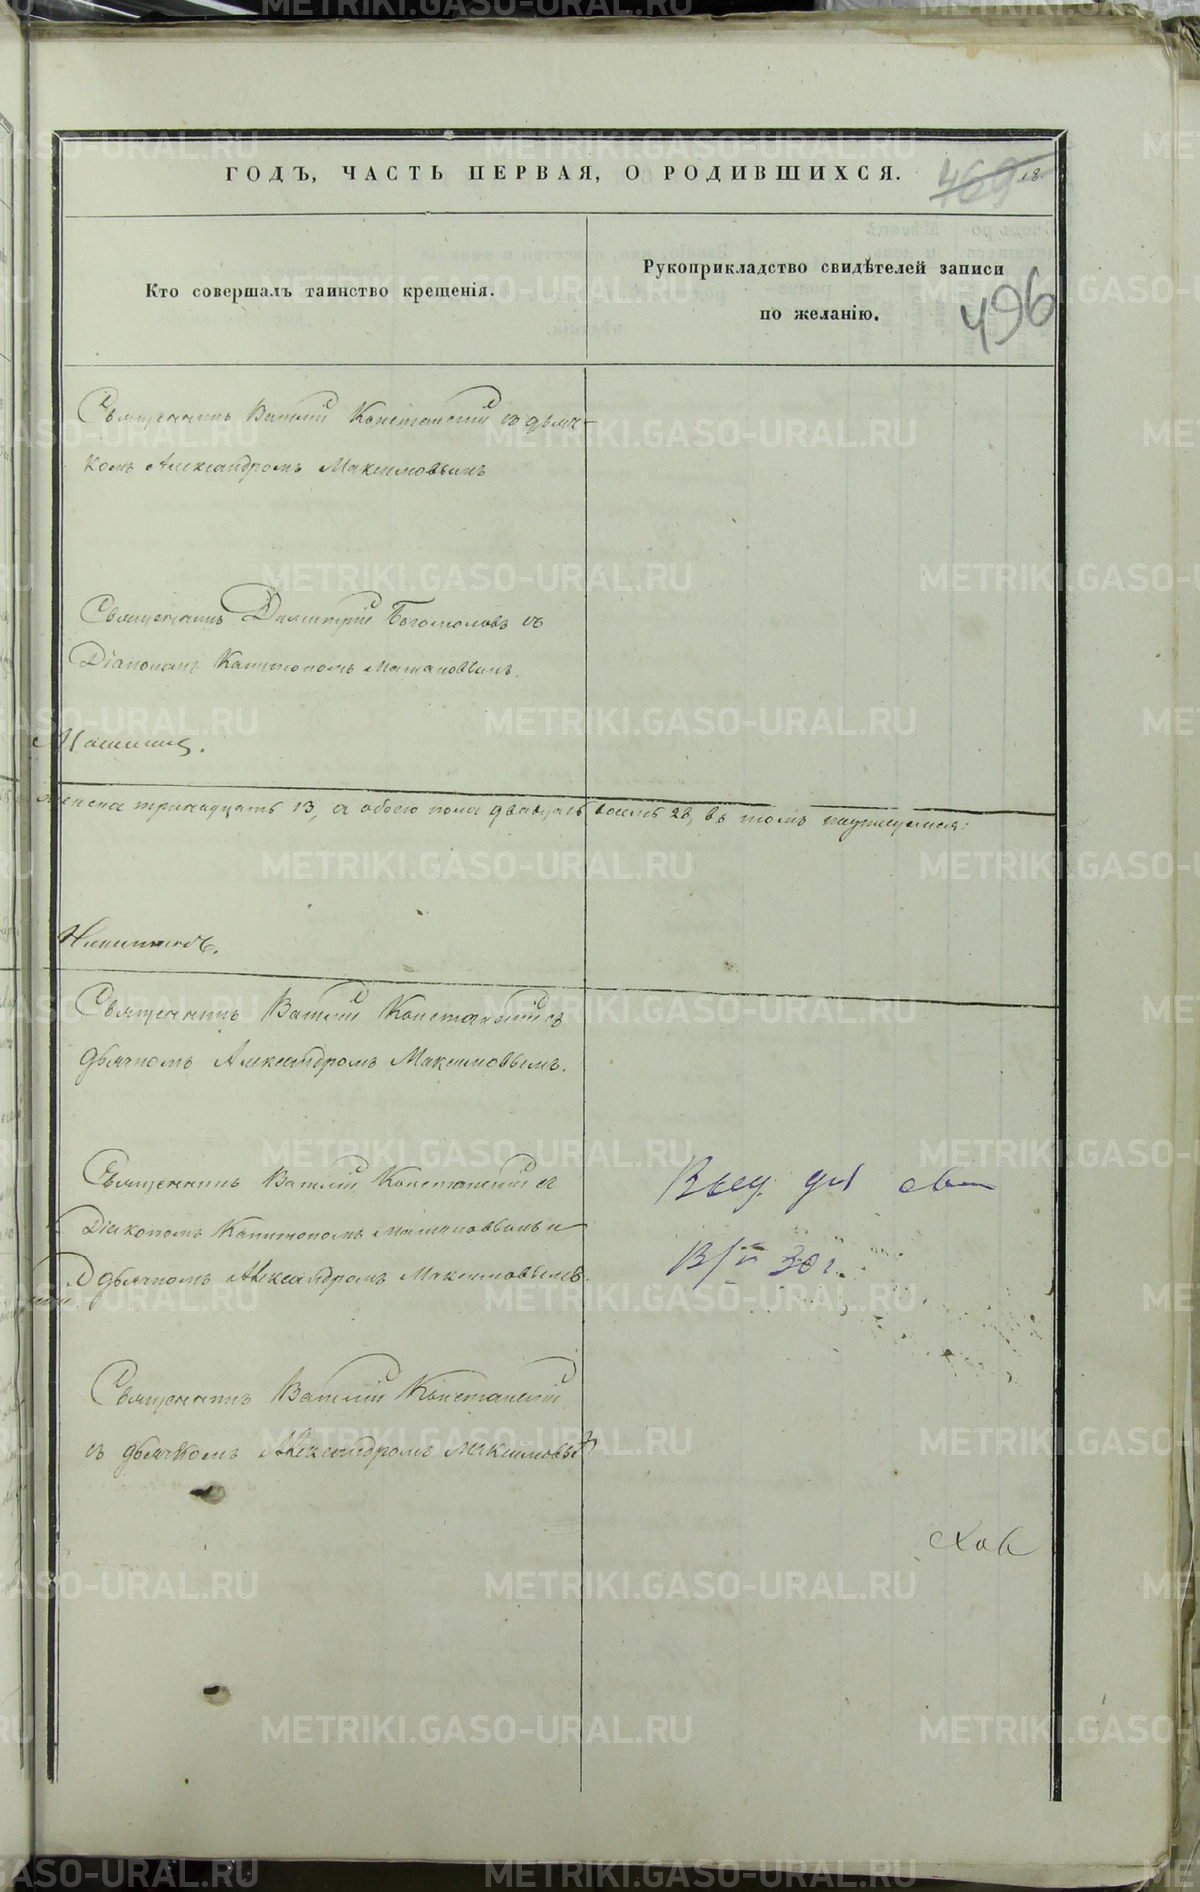 ГОДЪ, ЧАСТЬ ПЕРВАЯ, О РОДИВШИХСЯ.
469
18
Кто совершалъ таинство крещенія.
Рукоприкладство свидѣтелей записи
по желанію.
496
Священникъ Василій Констанскій съ дьяч-
комъ Александромъ Максимовымъ
Священникъ Димитрій Богомоловъ съ
Діакономъ Капитономъ
женска тринадцать 13, а обоего пола двадцать восемь 28, въ томъ
Священникъ Василій Констанскій съ
дьячкомъ Александромъ Максимовымъ.
Священникъ Василій Констанскій съ
Діакономъ Капитономъ и
дьячкомъ Александромъ Максимовымъ.
30 г.
Священникъ Василій Констанскій
съ дьячкомъ Александромъ Максимовы
METRIKI.GASO-URAL.RU